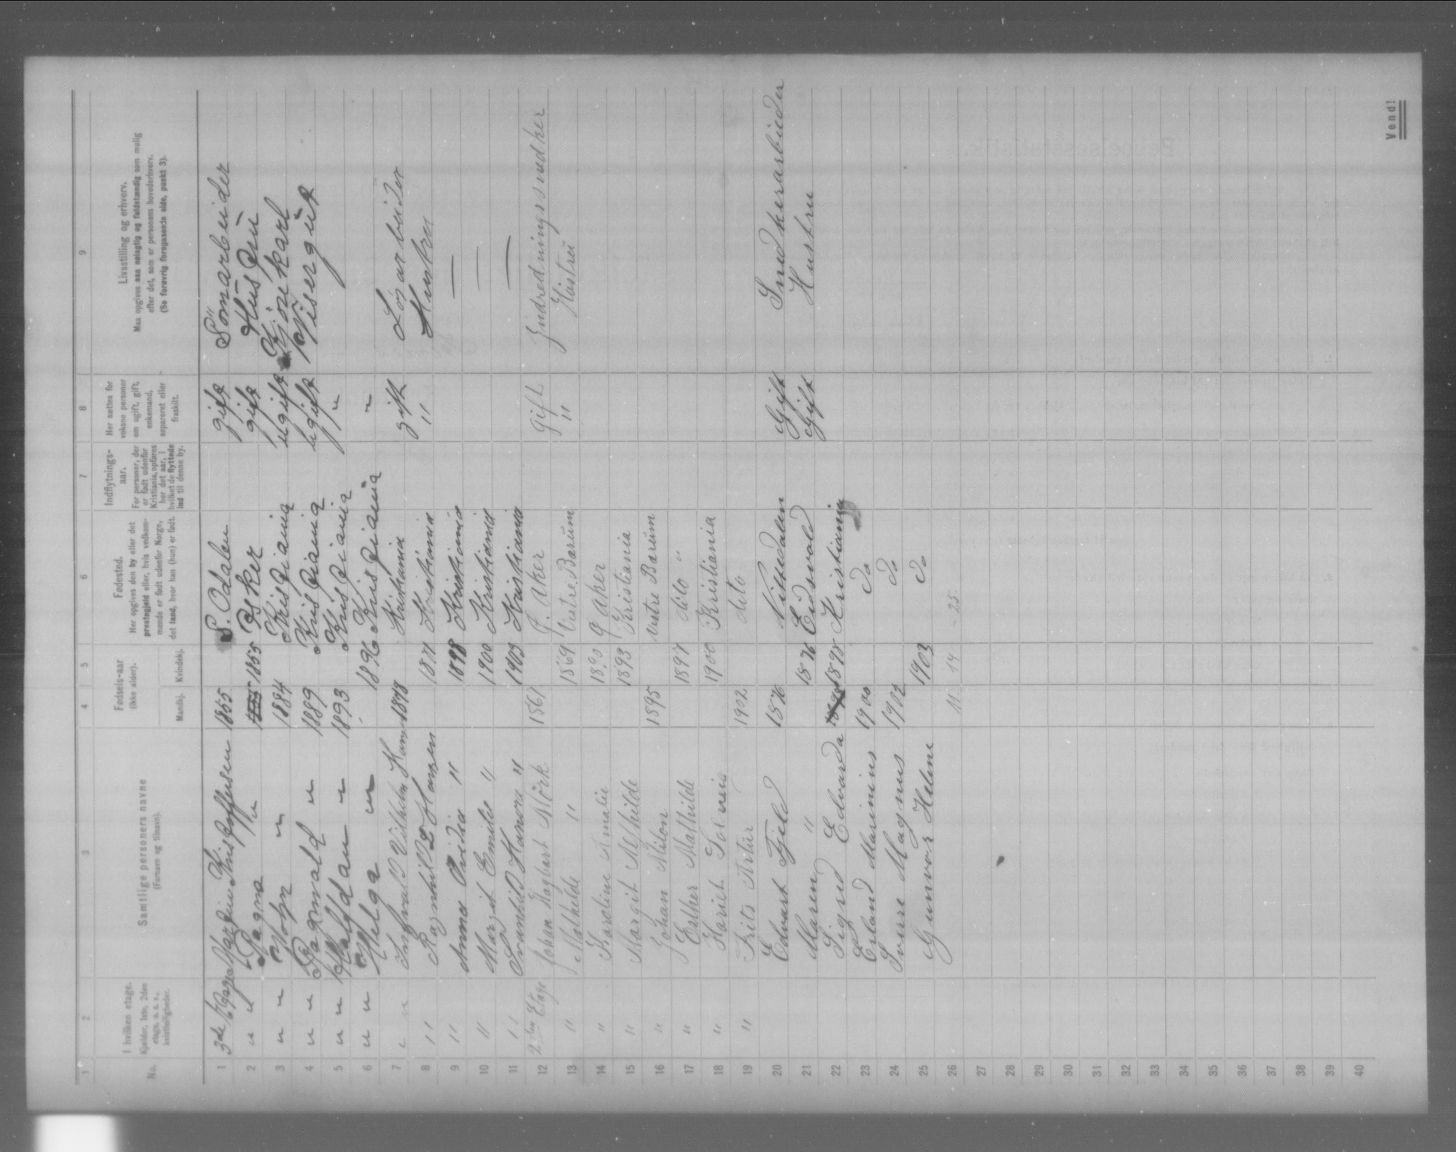 1 2 3 4 5 6 7 8 9
No.
I hvilken etage.
Kjelder, 1ste, 2den etage, o. s. v., kvistleiligheder.
Samtlige personers navne
(Fornavn og tilnavn).
Fødsels-aar
(ikke alder).
Mandkj. Kvindekj.
Fødested.
Her opgives den by eller det
prestegjeld eller, hvis vedkom-
mende er født udenfor Norge,
det land, hvor han (hun) er født.
Indflytnings-
aar.
For personer, der
er født udenfor
Kristiania, opføres
her det aar, i
hvilket de flyttede
ind til denne by.
Her sættes for
voksne personer
om ugift, gift,
enkemand,
separeret eller
fraskilt.
Livsstilling og erhverv.
Maa opgives saa nøiagtig og fuldstændig som mulig
efter det, som er personens hovederhverv.
(Se forøvrig foregaaende side, punkt 3).
1 3de Martin Kristoffersen 1855 S. Odalen gift
2 " " Dagna " 1855 Asker gift Hustru
3 " " John " 1884 Kristiania ugift
4 " " Dagmald " 1889 Kristiania ugift Visergut
5 " " Halfdan " 1893 Kristiania "
6 " " Helga " 1896 Kristiania "
7 " Vilhelm 1873 Kristiania gift Løsarbeider
8 " Ragnhild Hansen 1871 Kristiania " Hustru
9 " Anna " 1898 Kristiania —
10 " Margit Emilie " 1900 Kristiania —
11 " Hansen " 1903 Kristiania —
12 2den Etage Johan Dagbart Mørk 1861 V. Aker gift Indredningssnedker
13 " Mathilde " 1869 Vestre Bærum " Hustru
14 " Karoline Amalie 1890 V. Aker
15 " Margit Mathilde 1893 Kristiania
16 " Johan Milon 1895 Vestre Bærum
17 " Esther Mathilde 1897 dito "
18 " Harriet Solveig 1900 Kristiania
19 " Frits Artur 1902 dito
20 Edvart Fjeld 1876 Nittedalen Gift Snedkerarbeider
21 Maren " 1876 Eidsvold Gift Hustru
22 Sigrid Edvarda 1898 Kristiania
23 Erland Marinius 1900 do
24 Sverre Magnus 1902 do
25 Gunvor Helene 1903 do
26 11 14 25
27
28
29
30
31
32
33
34
35
36
37
38
39
40
Vend!